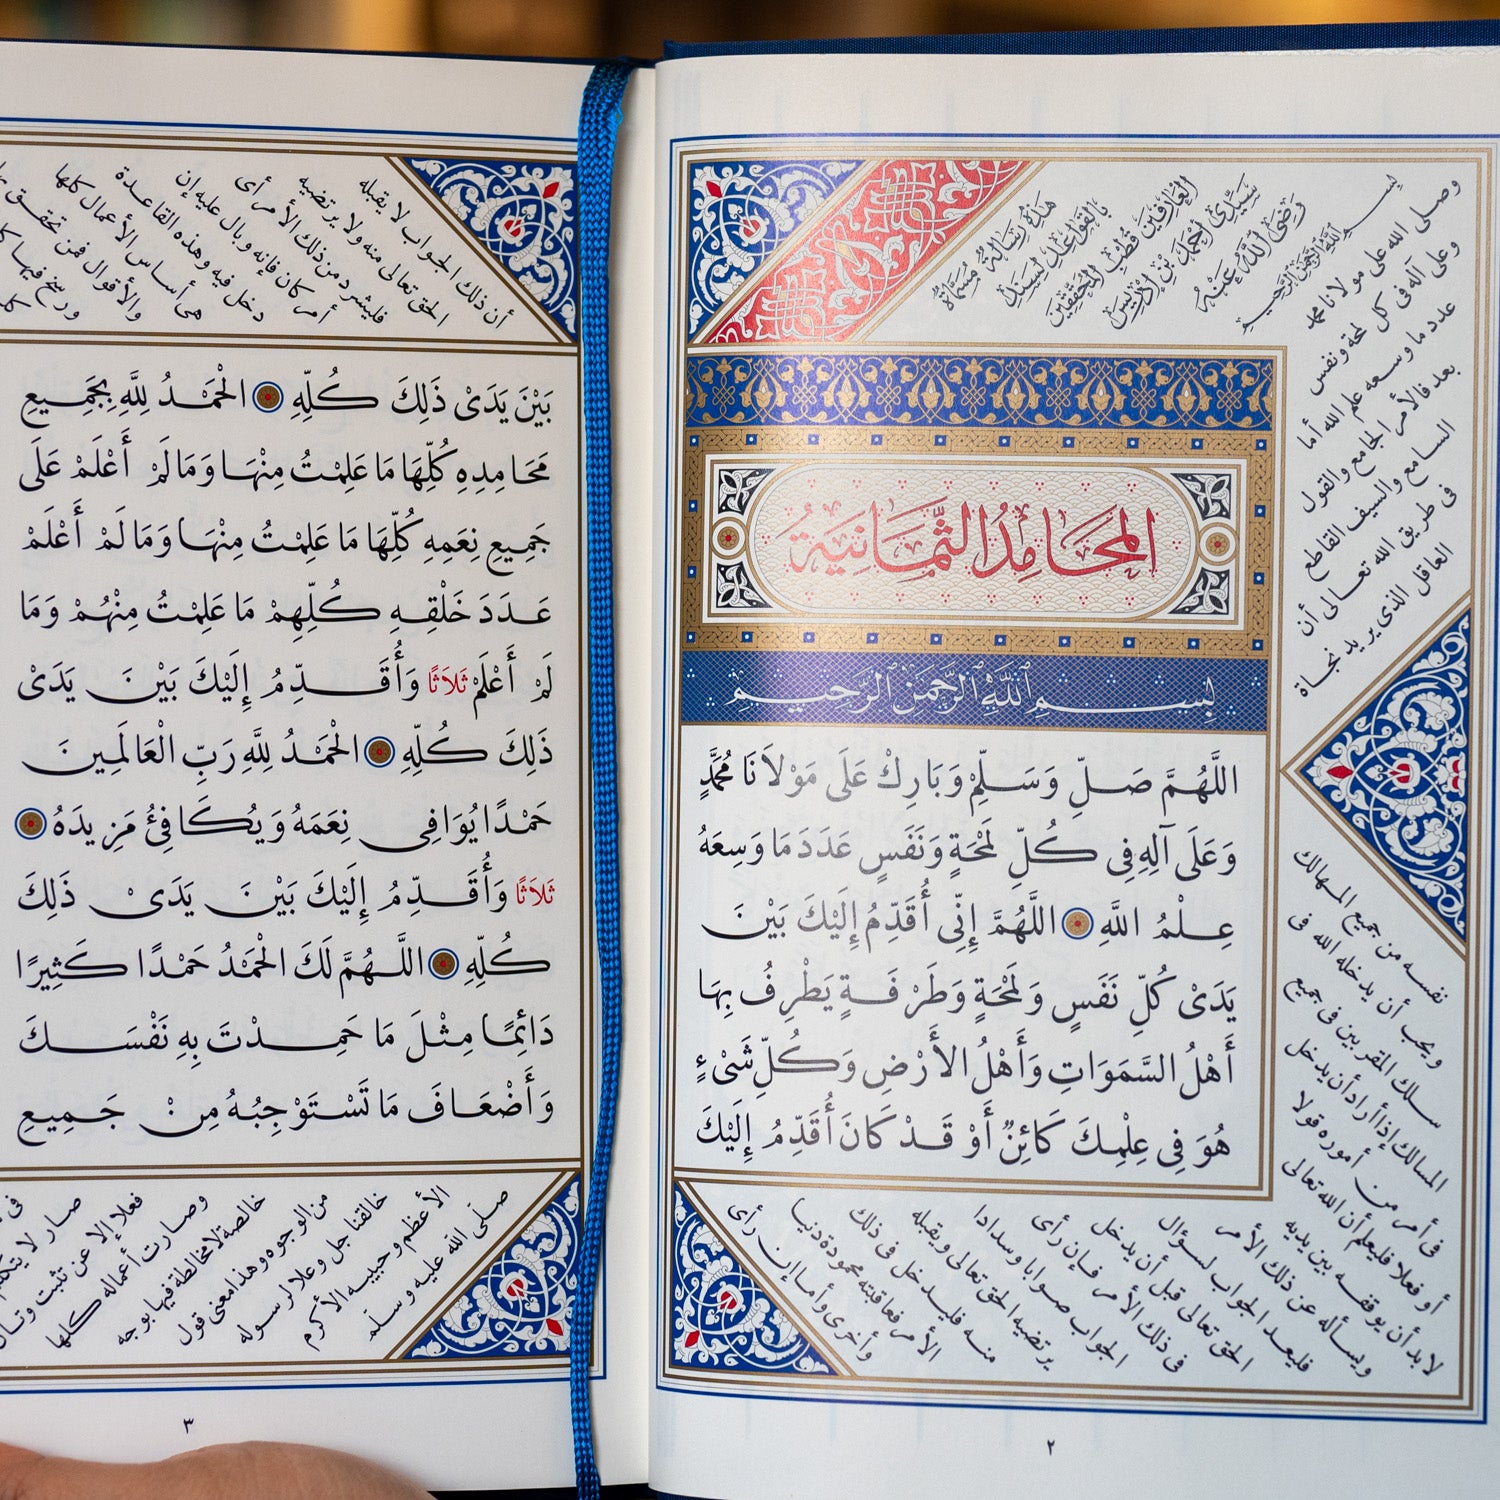 هذه رسالة مسماة
بالقول عند لسيدي
العارفين قطب المحققين
سيدي أحمد بن إدريس
رضي الله عنه
بسم الله الرحمن الرحيم
وصلى الله على مولانا محمد
وعلى آله فى كل لمحة ونفس
عدد ما وسعه علم الله أما
بعد فالأمر الجامع والقول
السامع والسيف القاطع
فى طريق الله تعالى أن
العاقل الذى يريد نجاة
نفسه من جميع المهالك
ويحب أن يدخله الله فى
سلك المقربين فى جميع
المسالك إذا أراد أن يدخل
فى أمر من أموره قولا
أو فعلا فليعلم أن الله تعالى
لابد أن يوقفه بين يديه
ويسأله عن ذلك الأمر
فليعد الجواب لسؤال
الحق تعالى قبل أن يدخل
فى ذلك الأمر فإن رأى
الجواب صوابا وسدادا
يرتضيه الحق تعالى ويقبله
منه فليدخل فى ذلك
الأمر فعاقبته محمودة دنيا
وأخرى وأما إن رأى
المَحَامِدُ الثَّمَانِيَةُ
بِسْمِ ٱللَّهِ ٱلرَّحْمَنِ ٱلرَّحِيمِ
اللَّهُمَّ صَلِّ وَسَلِّمْ وَبَارِكْ عَلَى مَوْلَانَا مُحَمَّدٍ
وَعَلَى آلِهِ فِى كُلِّ لَمْحَةٍ وَنَفَسٍ عَدَدَ مَا وَسِعَهُ
عِلْمُ اللَّهِ اللَّهُمَّ إِنِّى أُقَدِّمُ إِلَيْكَ بَيْنَ
يَدَىْ كُلِّ نَفَسٍ وَلَمْحَةٍ وَطَرْفَةٍ يَطْرِفُ بِهَا
أَهْلُ السَّمَوَاتِ وَأَهْلُ الأَرْضِ وَكُلِّ شَىْءٍ
هُوَ فِى عِلْمِكَ كَائِنٌ أَوْ قَدْ كَانَ أُقَدِّمُ إِلَيْكَ
٢
أن ذلك الجواب لا يقبله
الحق تعالى منه ولا يرتضيه
فليشرد من ذلك الأمر أى
أمر كان فإنه وبال عليه إن
دخل فيه وهذه القاعدة
هى أساس الأعمال كلها
والأقوال فمن تحقق
ورسخ فيها
بَيْنَ يَدَىْ ذَلِكَ كُلِّهِ الْحَمْدُ لِلَّهِ بِجَمِيعِ
مَحَامِدِهِ كُلِّهَا مَا عَلِمْتُ مِنْهَا وَمَا لَمْ أَعْلَمْ عَلَى
جَمِيعِ نِعَمِهِ كُلِّهَا مَا عَلِمْتُ مِنْهَا وَمَا لَمْ أَعْلَمْ
عَدَدَ خَلْقِهِ كُلِّهِمْ مَا عَلِمْتُ مِنْهُمْ وَمَا
لَمْ أَعْلَمْ ثَلَاثًا وَأُقَدِّمُ إِلَيْكَ بَيْنَ يَدَىْ
ذَلِكَ كُلِّهِ الْحَمْدُ لِلَّهِ رَبِّ الْعَالَمِينَ
حَمْدًا يُوَافِى نِعَمَهُ وَيُكَافِئُ مَزِيدَهُ
ثَلَاثًا وَأُقَدِّمُ إِلَيْكَ بَيْنَ يَدَىْ ذَلِكَ
كُلِّهِ اللَّهُمَّ لَكَ الْحَمْدُ حَمْدًا كَثِيرًا
دَائِمًا مِثْلَ مَا حَمِدْتَ بِهِ نَفْسَكَ
وَأَضْعَافَ مَا تَسْتَوْجِبُهُ مِنْ جَمِيعِ
صلى الله عليه وسلم
الأعظم وحبيبه الأكرم
خالقنا جل وعلا لرسوله
من الوجوه وهذا معنى قول
خالصة لا مخالطة فيها بوجه
وصارت أعماله كلها
فعلا إلا عن تثبت
صار لا يتكلم
٣